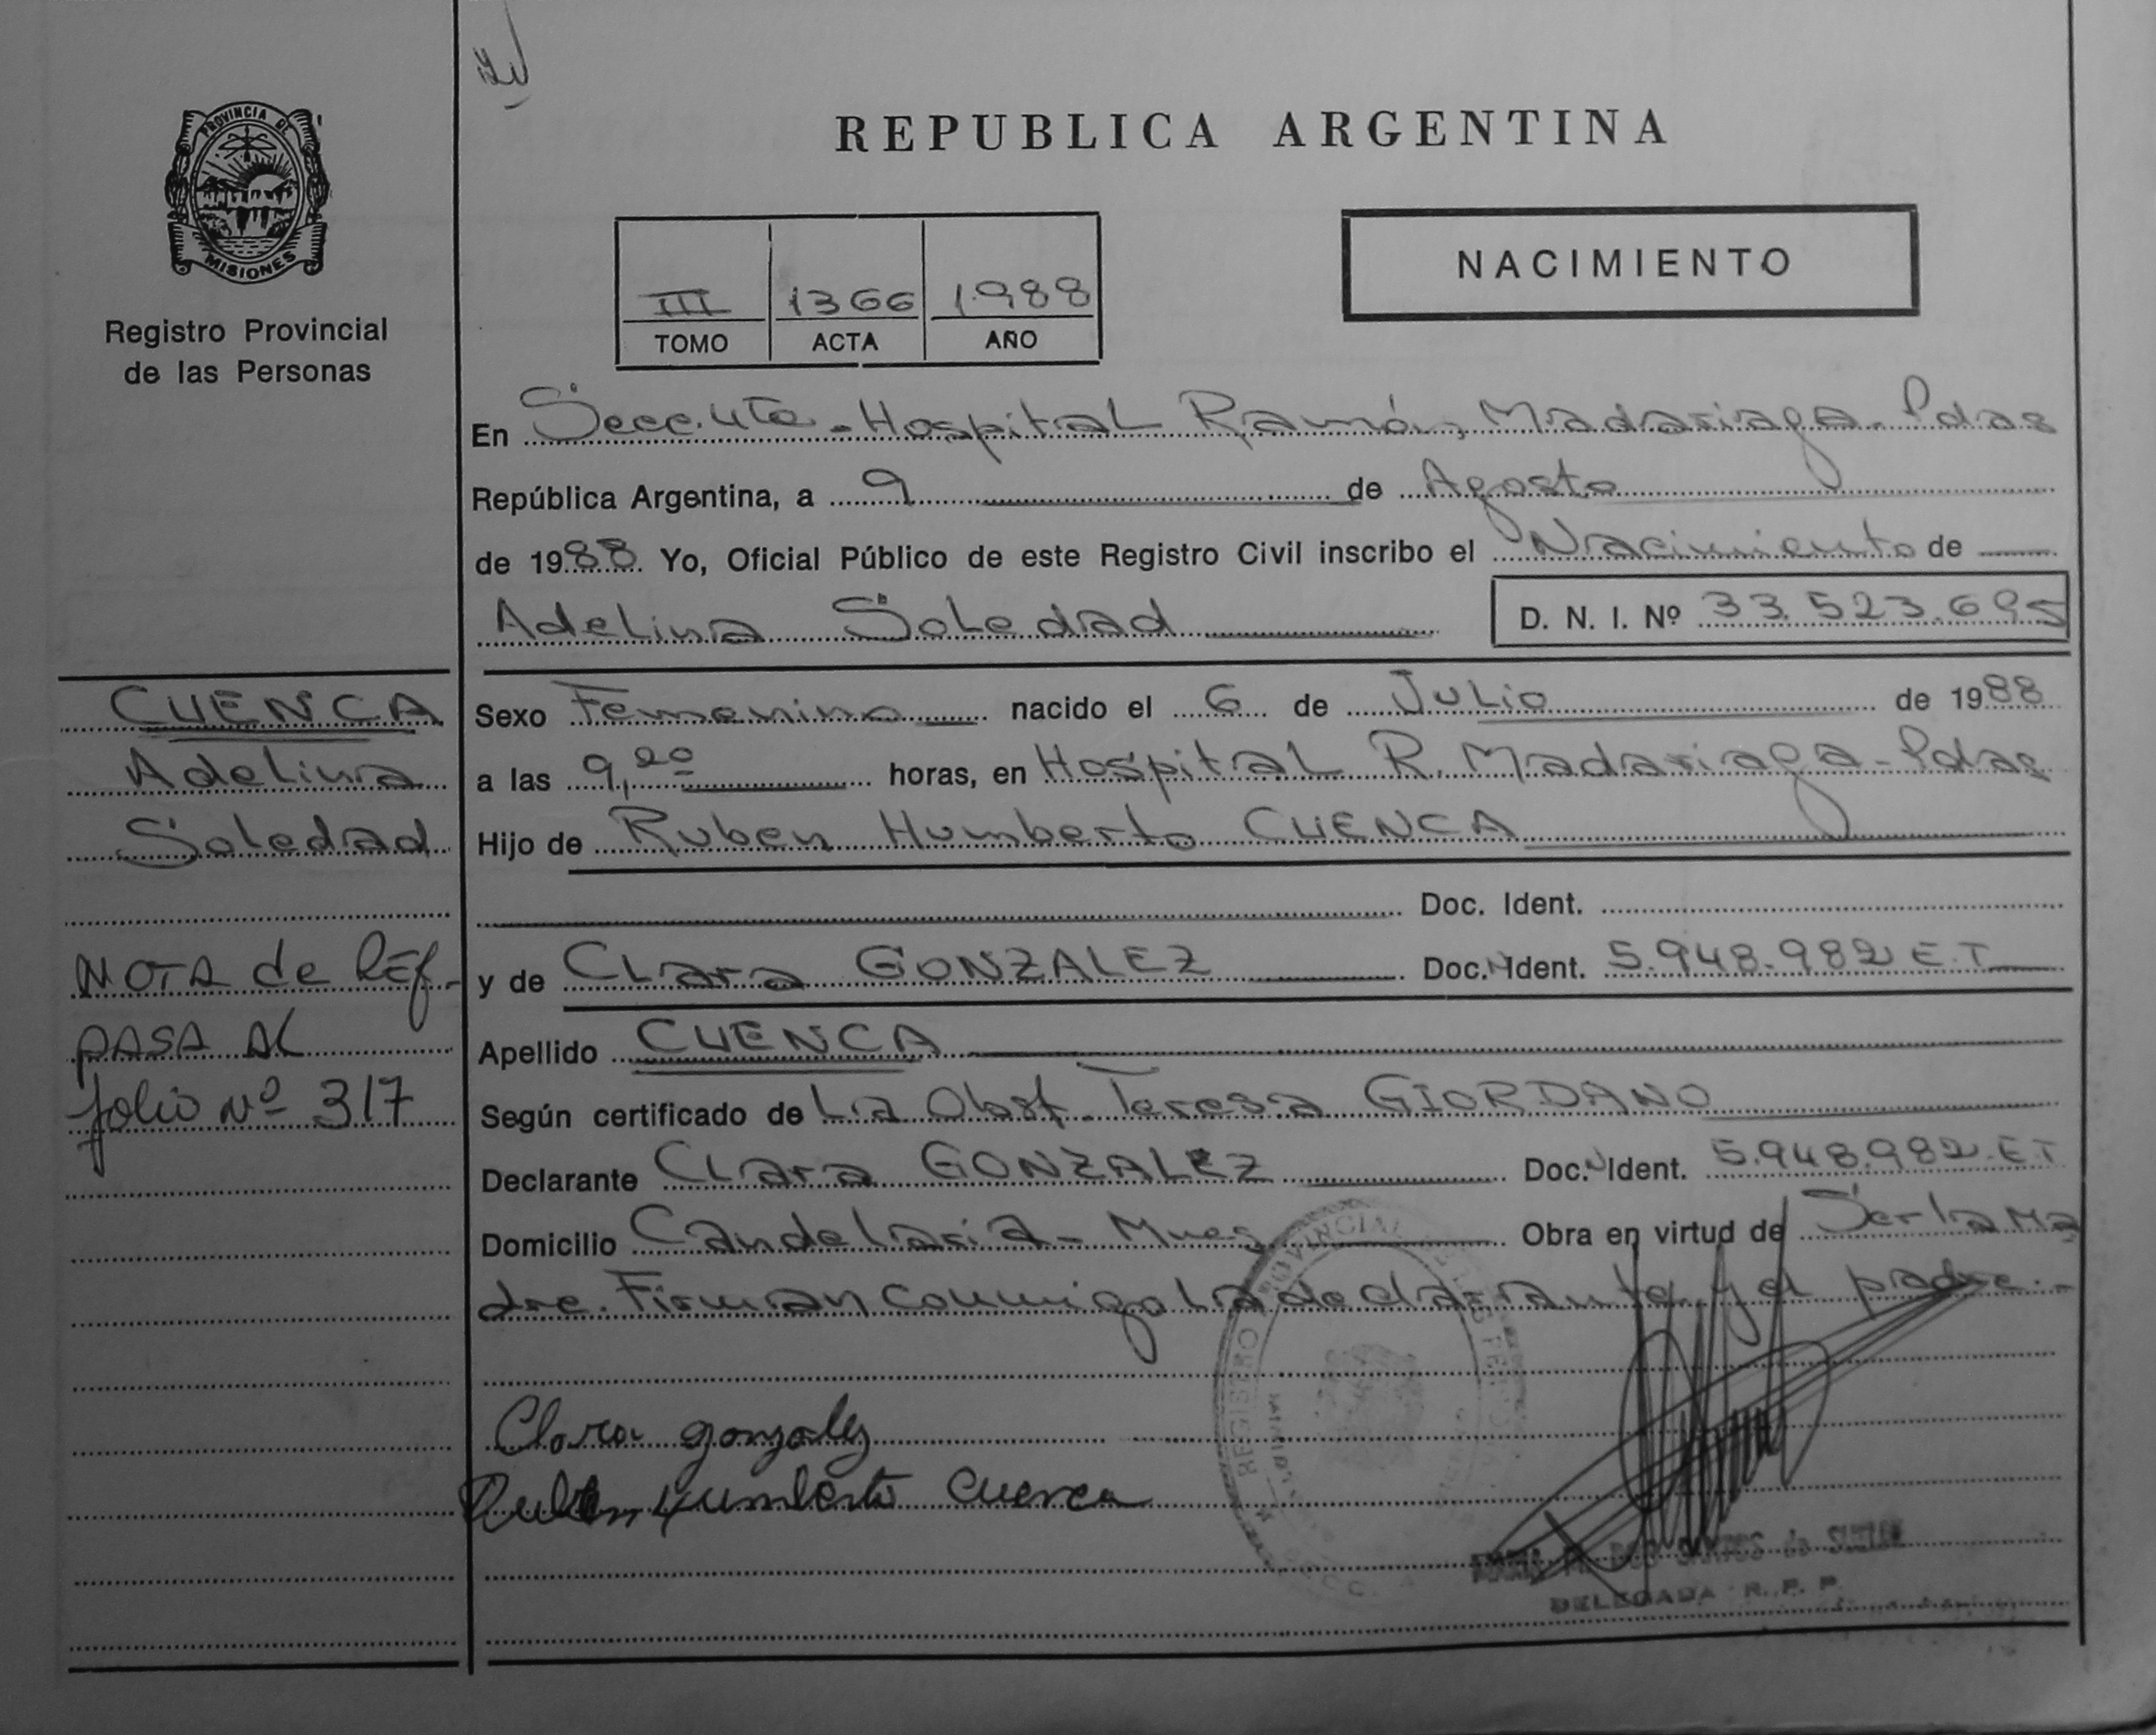 PROVINCIA DE
MISIONES
Registro Provincial
de las Personas
REPUBLICA ARGENTINA
NACIMIENTO
III 1366 1988
TOMO ACTA AÑO
En Secc. 4ta - Hospital Ramón Madariaga - Pdas
República Argentina, a 9 de Agosto
de 1988 Yo, Oficial Público de este Registro Civil inscribo el Nacimiento de
Adelina Soledad D. N. I. Nº 33.523.695
CUENCA
Adelina
Soledad
NOTA de REf-
PASA AL
folio Nº 317
Sexo Femenino nacido el 6 de Julio de 1988
a las 9,20 horas, en Hospital R. Madariaga - Pdas
Hijo de Ruben Humberto CUENCA
Doc. Ident.
y de Clara GONZALEZ Doc. Ident. 5.948.982 E.T
Apellido CUENCA
Según certificado de La Obst. Teresa GIORDANO
Declarante Clara GONZALEZ Doc. Ident. 5.948.982 E.T
Domicilio Candelaria - Mnes Obra en virtud de Ser la Ma
dre. Firman conmigo la declarante y el padre.-
Clara gonzalez
Ruben Humberto Cuenca
REGISTRO PROVINCIAL
DELEGADA R. P. P.